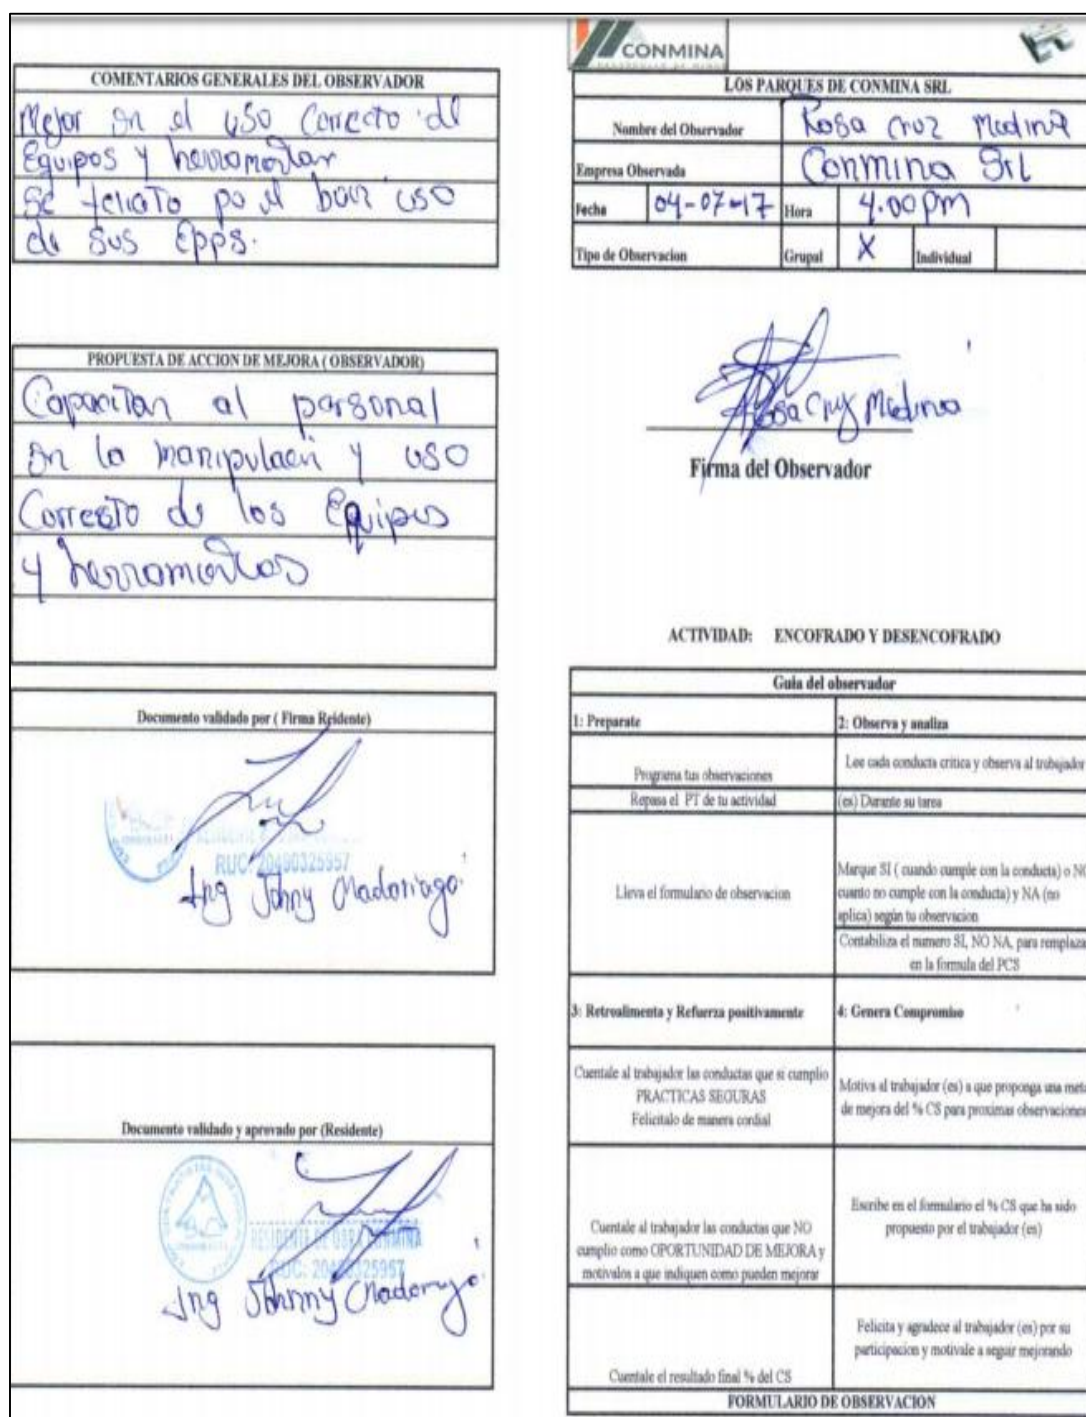 COMENTARIOS GENERALES DEL OBSERVADOR
Mejor en el uso Correcto de
Equipos y herramentar
Se po el buen uso
de sus Epps.
PROPUESTA DE ACCION DE MEJORA ( OBSERVADOR)
Capacitar al personal
en la manipulacn y uso
Correcto de los Equipos
y herramentas
Documento validado por ( Firma Reidente)
RUC: 20490325957
Ing Johny Madariaga
Documento validado y aprovado por (Residente)
RESIDENTE DE OBRA CONMINA
RUC: 20490325957
Ing Johnny Madaryo
CONMINA
LOS PARQUES DE CONMINA SRL
Nombre del Observador Rosa Cruz Medina
Empresa Observada Conmina Srl
Fecha 04-07-17 Hora 4.00pm
Tipo de Observacion Grupal X Individual
Rosa Cruz Medina
Firma del Observador
ACTIVIDAD: ENCOFRADO Y DESENCOFRADO
Guia del observador
1: Preparate 2: Observa y analiza
Programa tus observaciones Lee cada conducta critica y observa al trabajador
Repasa el PT de tu actividad (es) Durante su tarea
Lleva el formulario de observacion
Marque SI ( cuando cumple con la conducta) o NO
cuanto no cumple con la conducta) y NA (no
aplica) según tu observacion
Contabiliza el numero SI, NO NA, para remplaza
en la formula del PCS
3: Retroalimenta y Refuerza positivamente 4: Genera Compromiso
Cuentale al trabajador las conductas que si cumplio
PRACTICAS SEGURAS
Felicitalo de manera cordial
Motiva al trabajador (es) a que proponga una meta
de mejora del % CS para proximas observaciones
Cuentale al trabajador las conductas que NO
cumplio como OPORTUNIDAD DE MEJORA y
motivalos a que indiquen como pueden mejorar
Escribe en el formulario el % CS que ha sido
propuesto por el trabajador (es)
Cuentale el resultado final % del CS
Felicita y agradece al trabajador (es) por su
participacion y motivale a seguir mejorando
FORMULARIO DE OBSERVACION